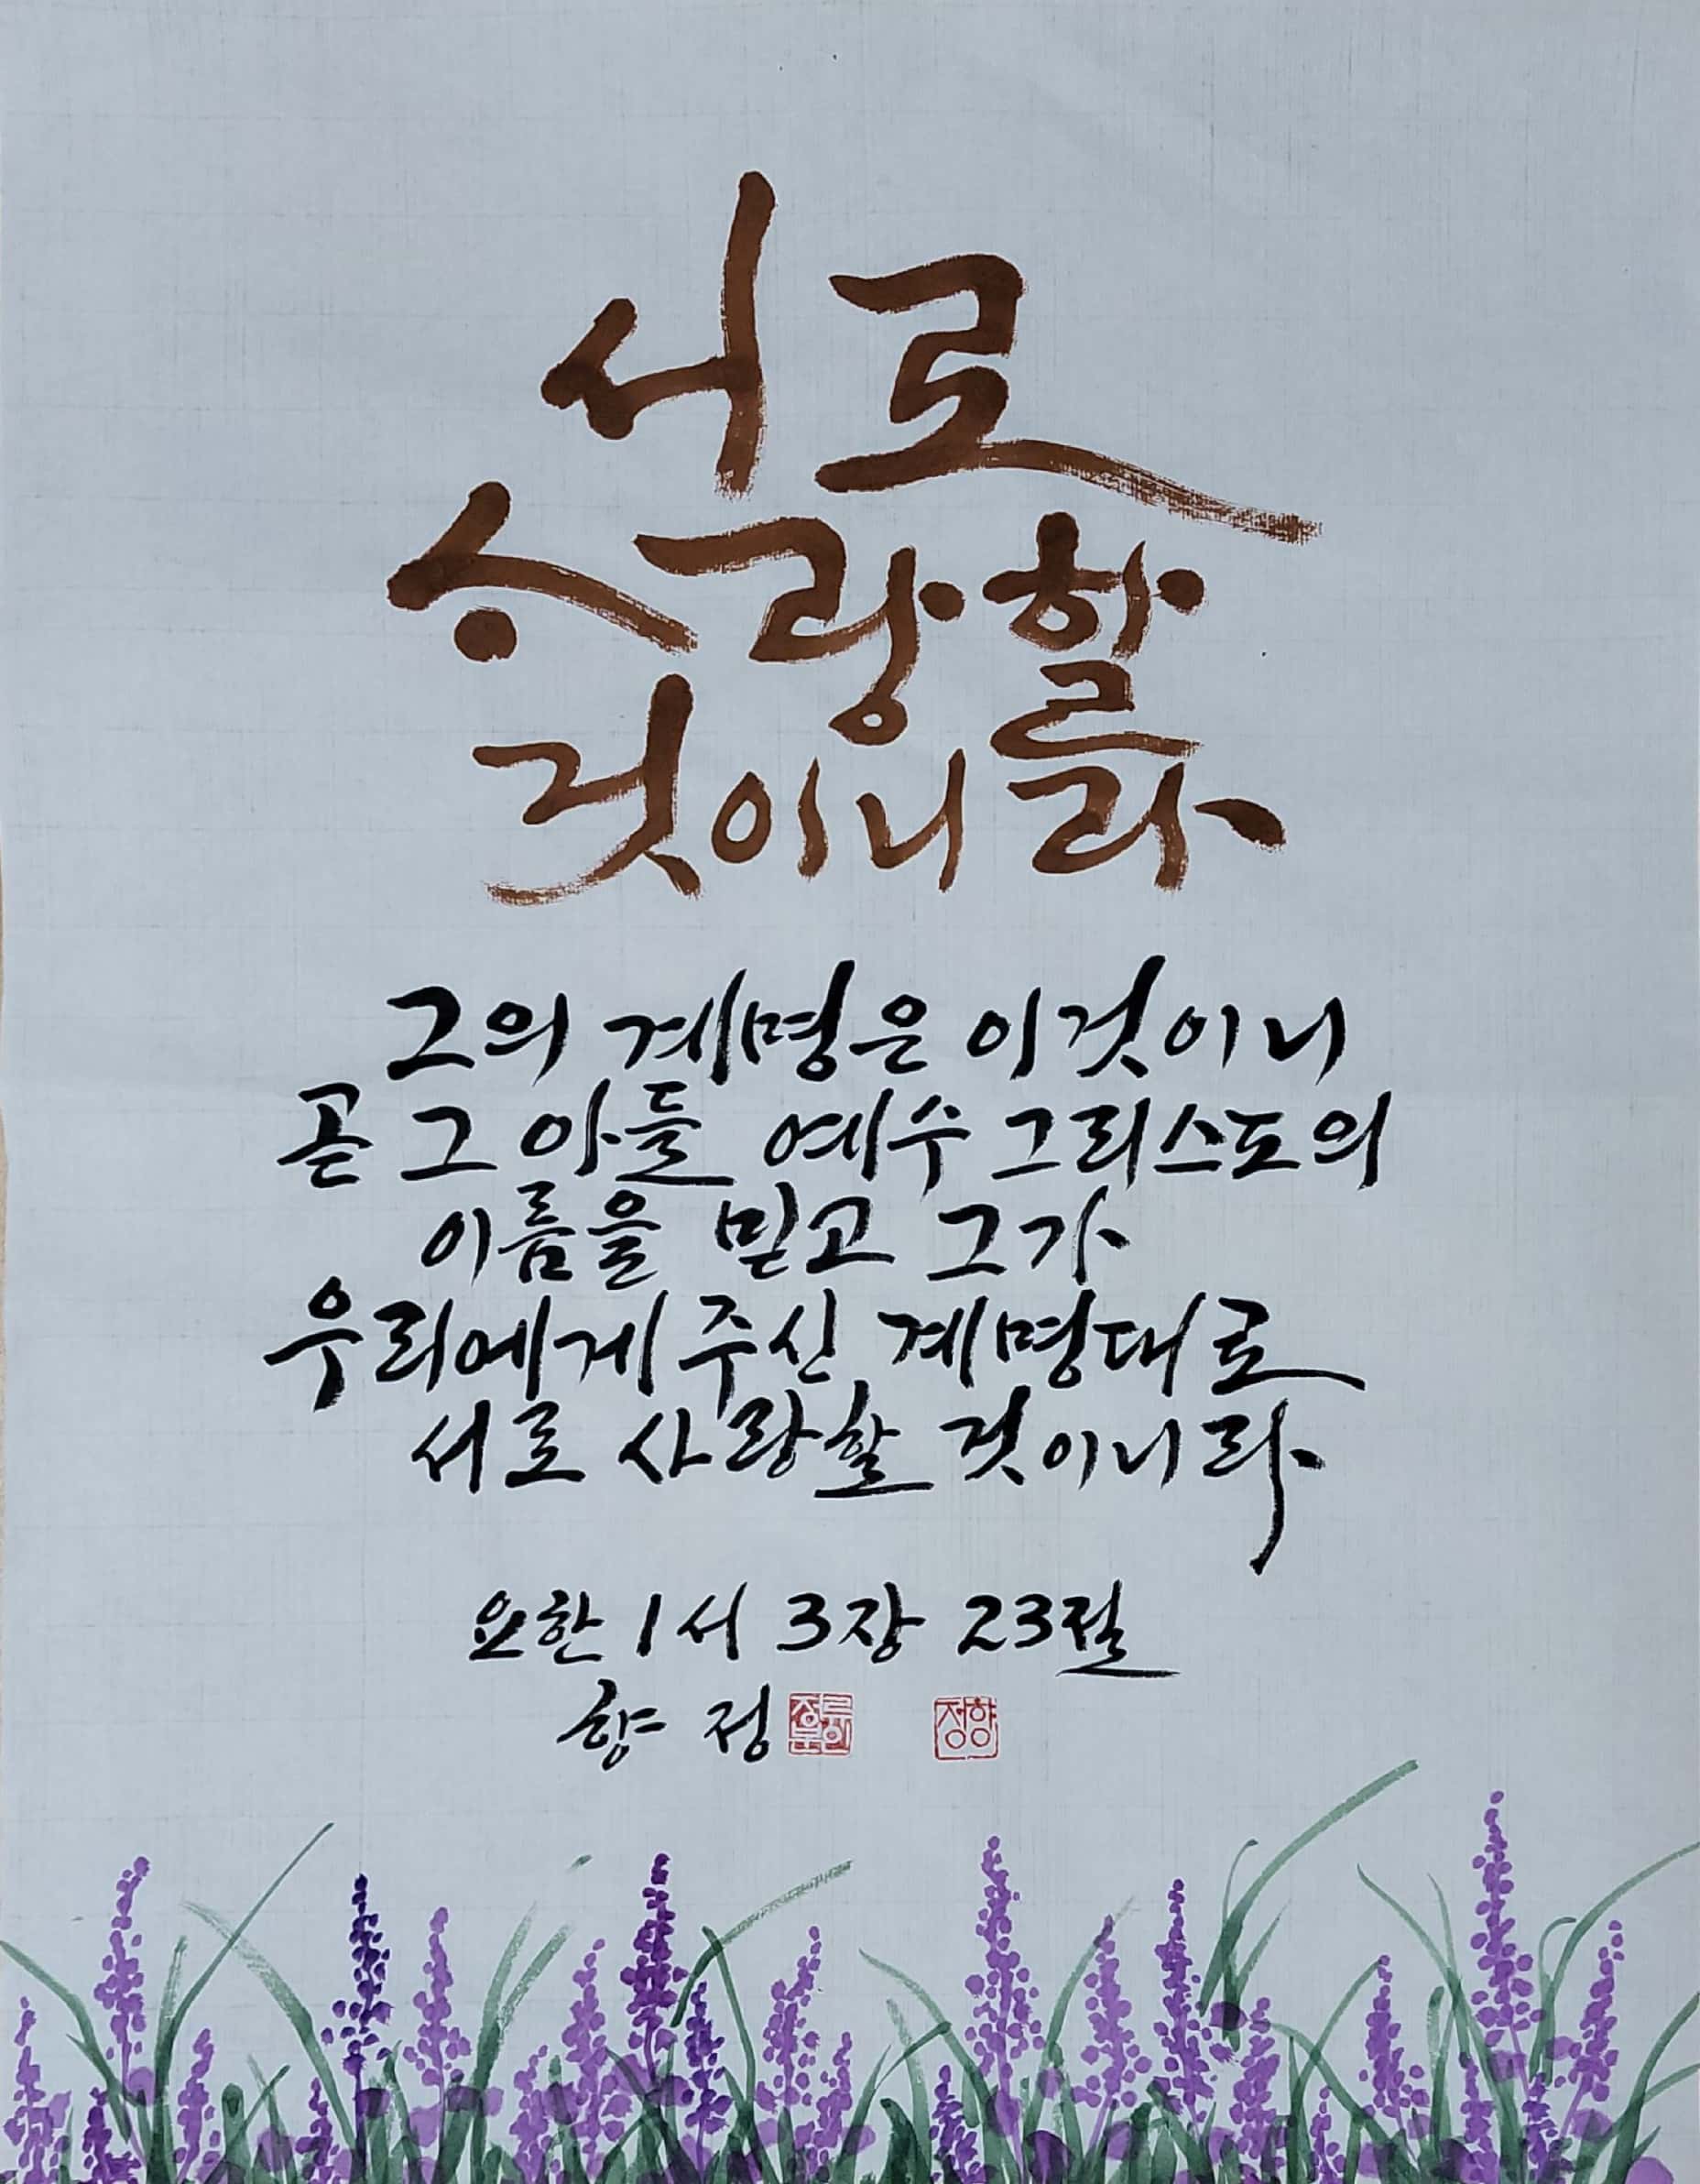 서로
사랑할
것이니라
그의 계명은 이것이니
곧 그 아들 예수 그리스도의
이름을 믿고 그가
우리에게 주신 계명대로
서로 사랑할 것이니라
요한1서 3장 23절
향정
향정